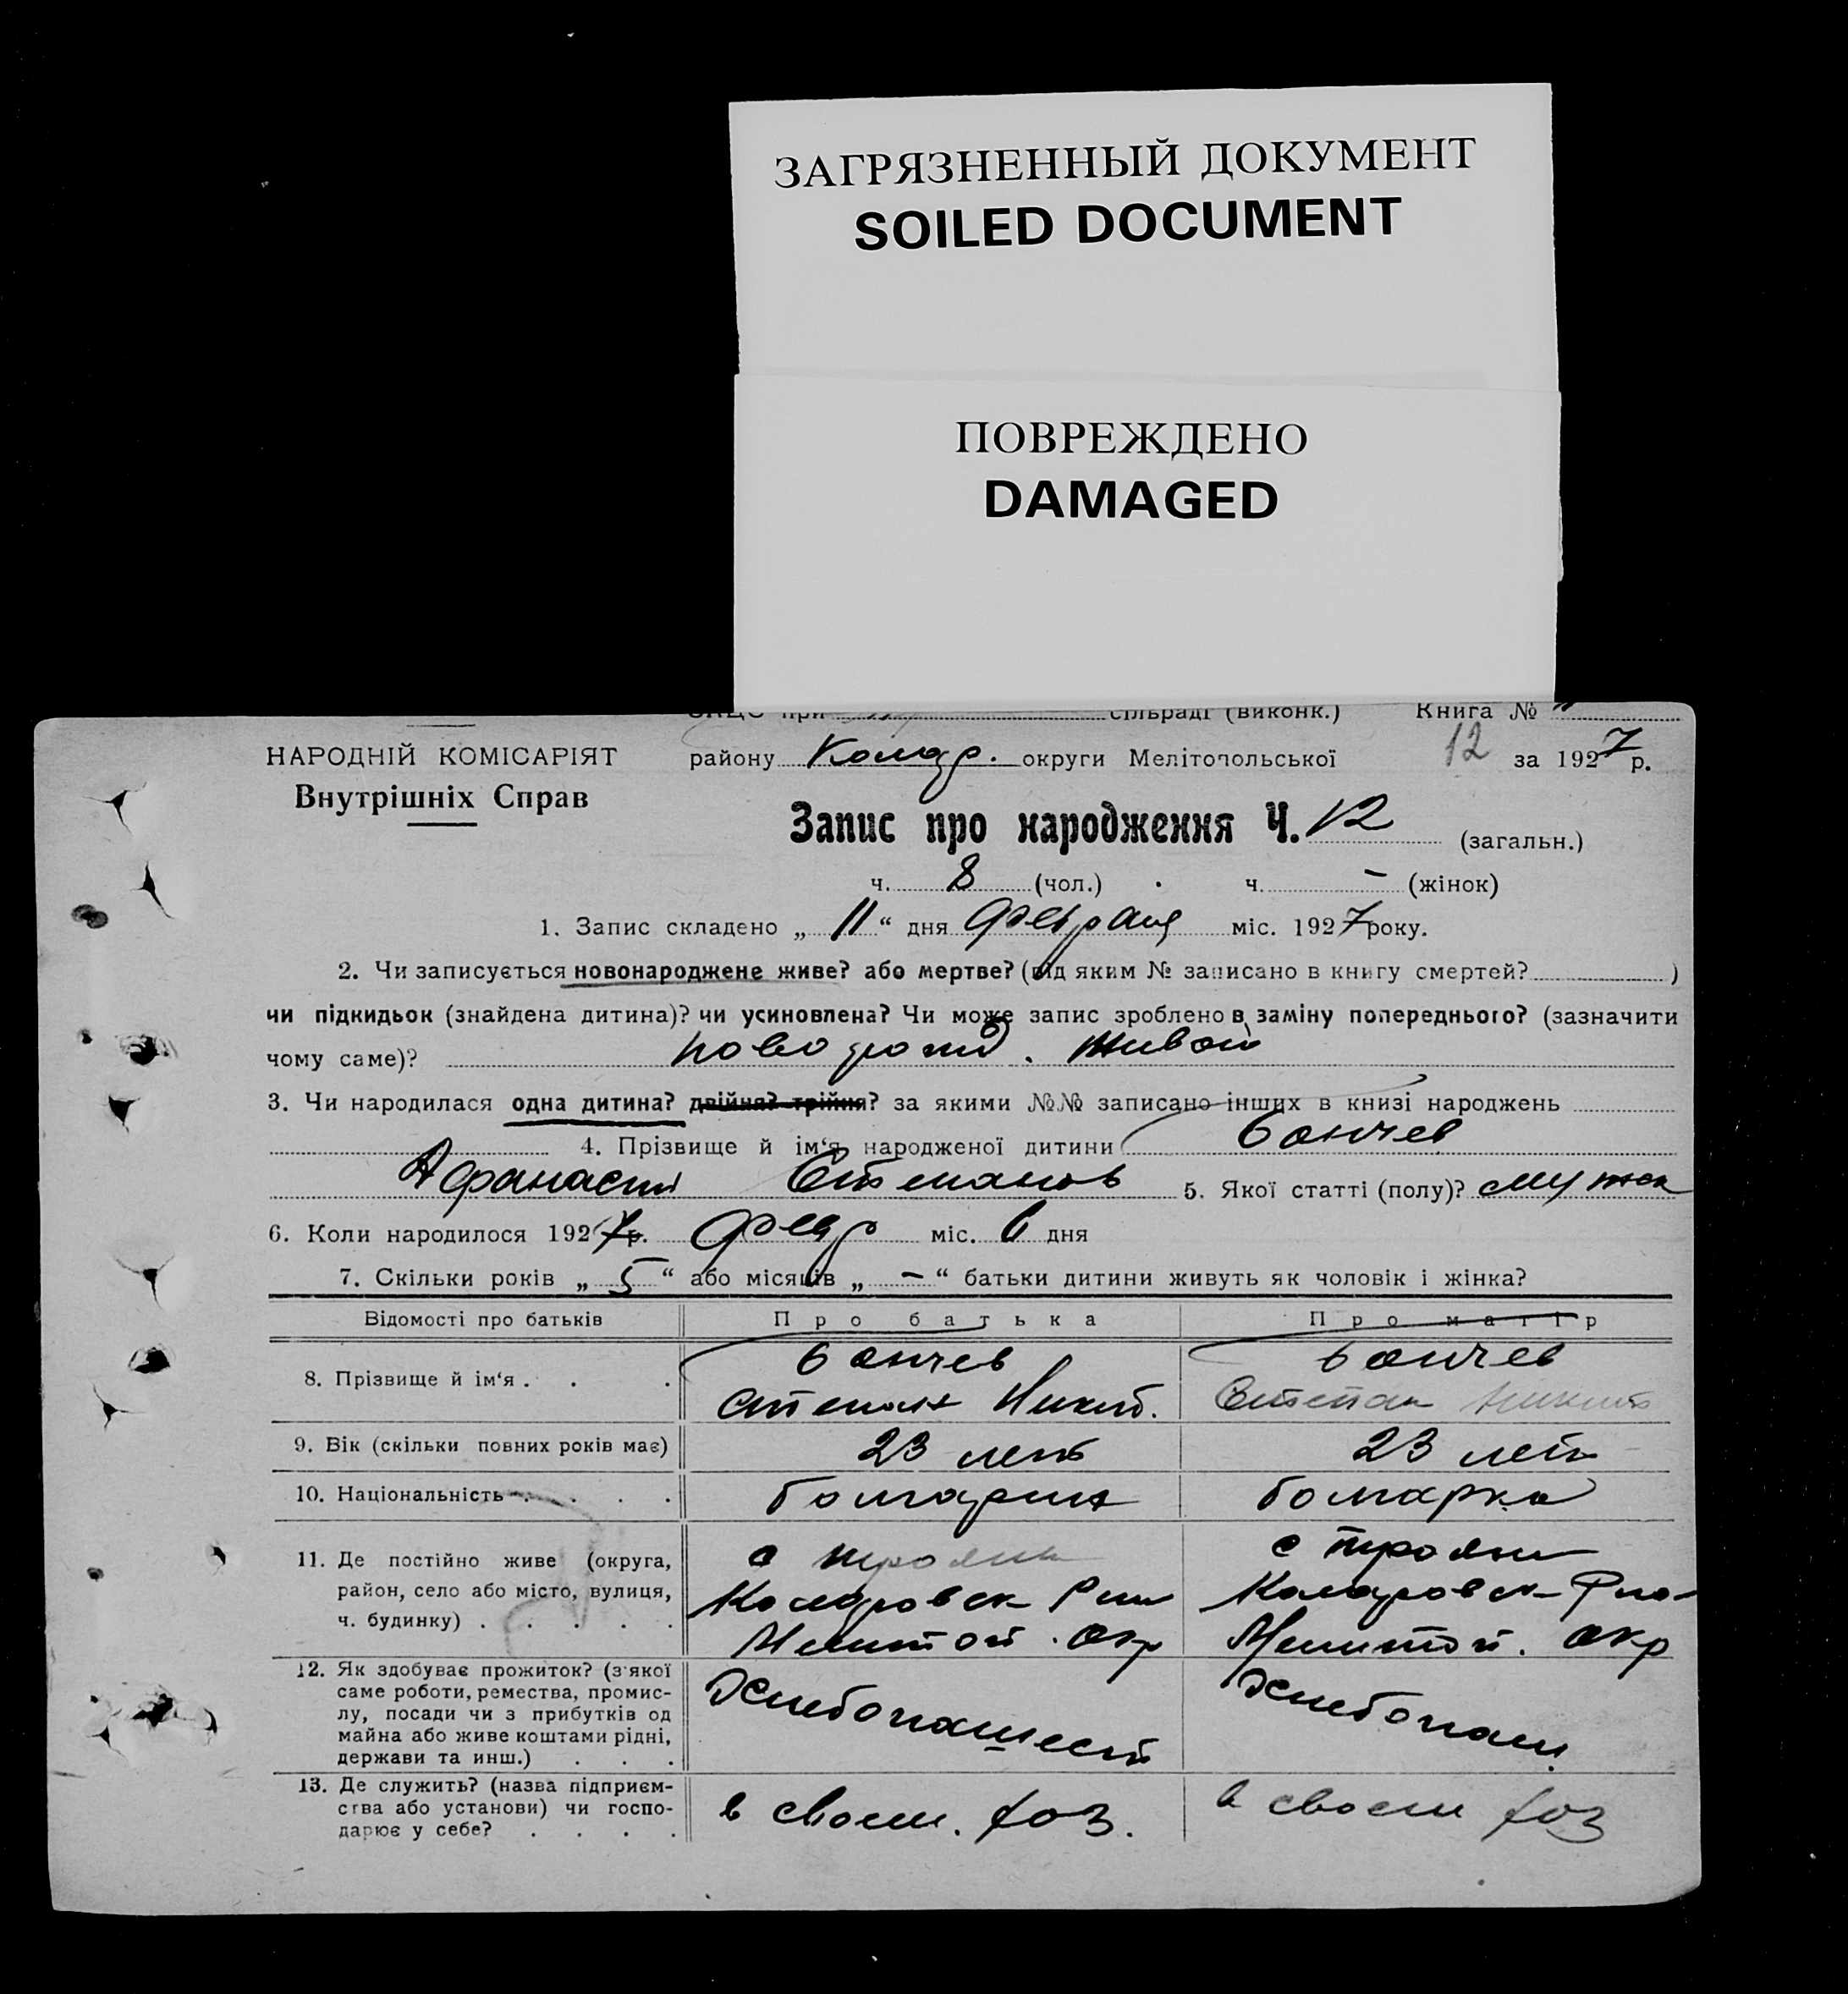 ЗАГРЯЗНЕННЫЙ ДОКУМЕНТ
SOILED DOCUMENT
ПОВРЕЖДЕНО
DAMAGED
ЗАЦС при сільраді (виконк.) Книга № "
НАРОДНІЙ КОМІСАРІЯТ
Внутрішніх Справ
району Комар. округи Мелітопольської 12 за 1927 р.
Запис про народження Ч. 12 (загальн.)
ч. 8 (чол.) ч. – (жінок)
1. Запис складено „ 11 “ дня Февраля міс. 1927 року.
2. Чи записується новонароджене живе? або мертве? (під яким № записано в книгу смертей? )
чи підкидьок (знайдена дитина)? чи усиновлена? Чи може запис зроблено в заміну попереднього? (зазначити
чому саме)? новорожд. живой
3. Чи народилася одна дитина? двійня? трійня? за якими №№ записано інших в книзі народжень
4. Прізвище й ім‘я народженої дитини Бончев
Афанасий Степанов 5. Якої статті (полу)? муж
6. Коли народилося 1927 р. февр міс. 6 дня
7. Скільки років „ 5 “ або місяців „ – “ батьки дитини живуть як чоловік і жінка?
Відомості про батьків Про батька Про матір
8. Прізвище й ім‘я . . . Бончев Бончев
Степан Никит. Степан Никит
9. Вік (скільки повних років має) 23 лет 23 лет
10. Національність . . . . болгарин болгарка
11. Де постійно живе (округа, район, село або місто, вулиця, ч. будинку) . . . . .
с Трояны с Трояны
Комаровск Рна Комаровск Рна
Мелитоп. окр Мелитоп. окр
12. Як здобуває прожиток? (з якої саме роботи, ремества, промислу, посади чи з прибутків од майна або живе коштами рідні, держави та инш.) . . .
Хлебопашест Хлебопаш.
13. Де служить? (назва підприємства або установи) чи господарює у себе? . . . .
в своем. хоз. в своем хоз